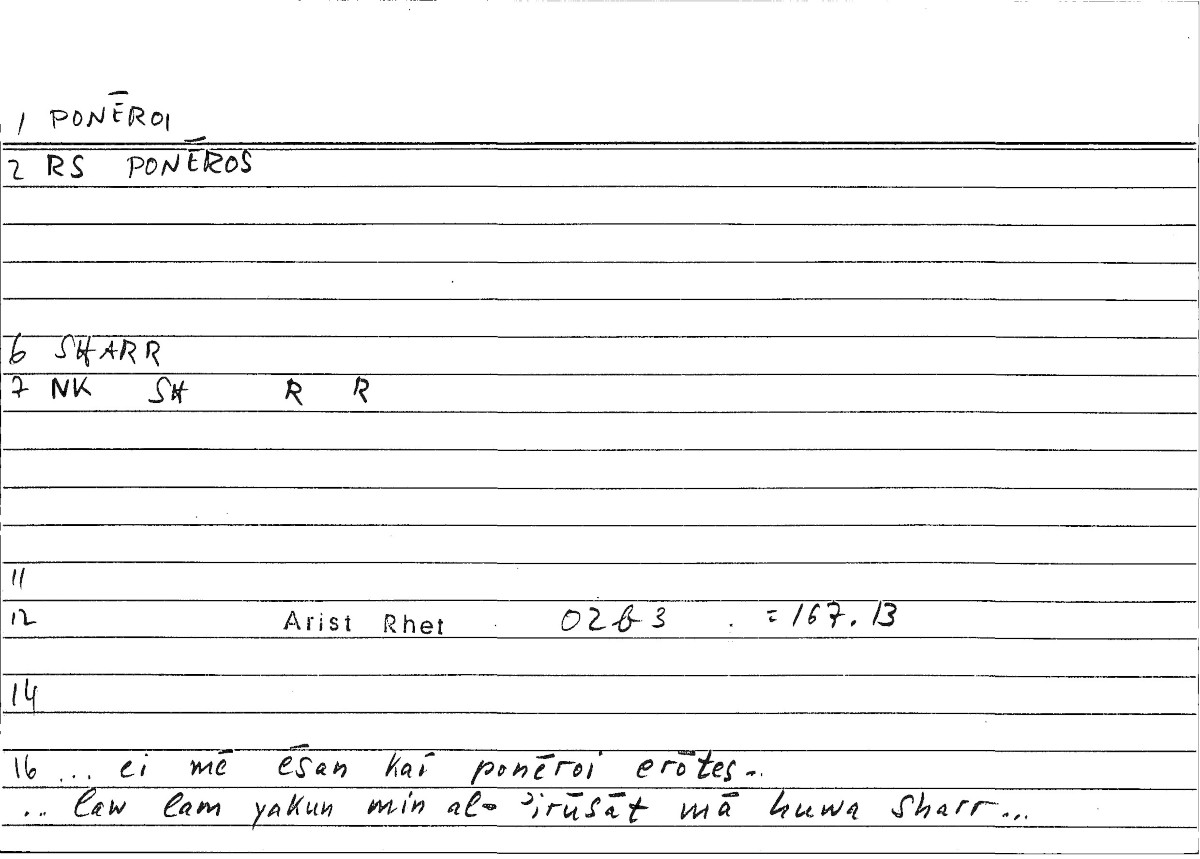 1 PONĒROI
2 RS PONĒROS
6 SHARR
7 NK SH R R
11
12 Arist Rhet 02b3 =167.13
14
16 ... ei mē ēsan kai ponēroi erōtes..
.. law lam yakun min al-ʾirūsāt mā huwa sharr...